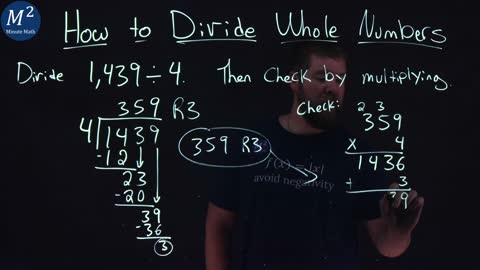 M²
Minute Math
How to Divide Whole Numbers
Divide 1,439 ÷ 4. Then Check by multiplying.
359 R3
4 1439
-12
23
-20
39
-36
3
359 R3
Check:
2 3
359
x 4
1436
+ 3
39
f(x) = |x|
avoid negativity